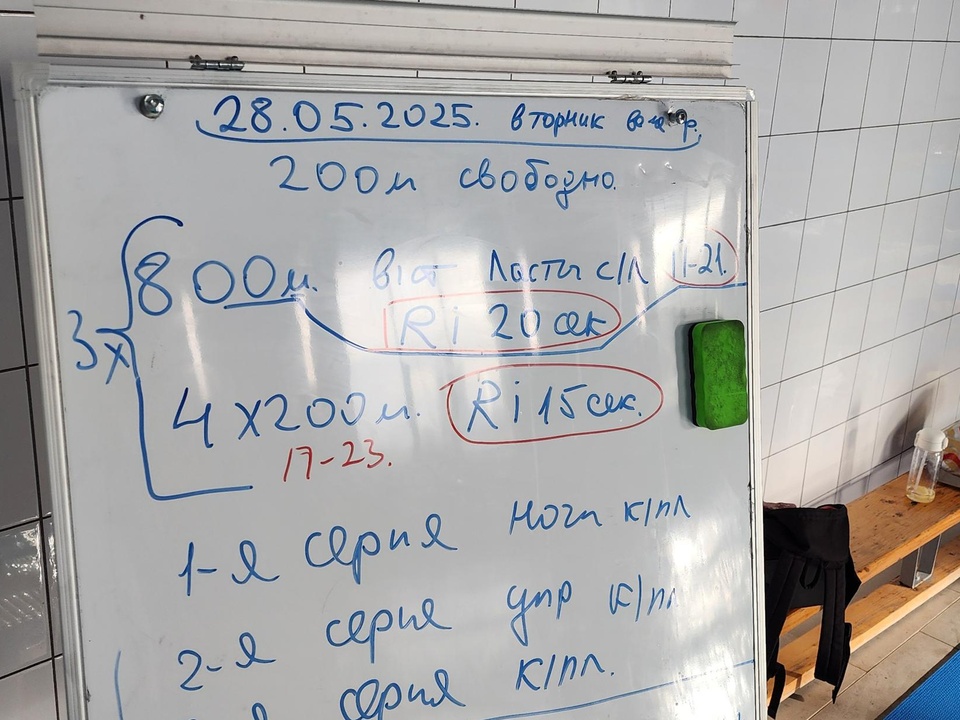 28.05.2025. вторник
200м свободно.
3х
800м. в/ст Ласты с/л 17-21.
Ri 20 сек
4х200м. Ri 15 сек.
17-23.
1-я серия ноги к/пл
2-я серия упр к/пл
серия к/пл.